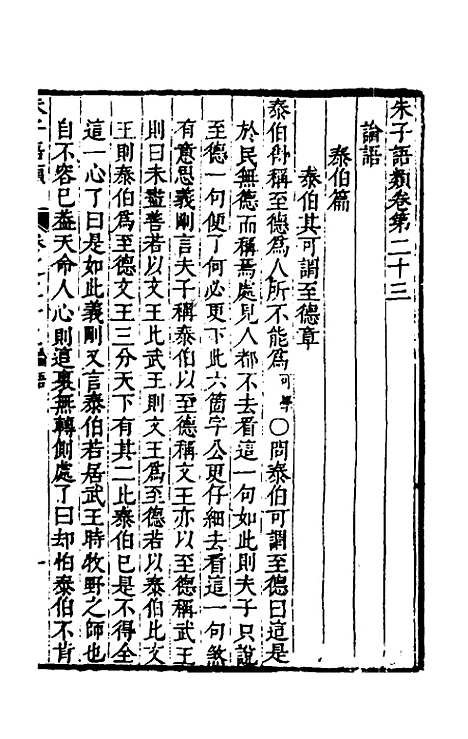 朱子語類卷第二十三
論語
泰伯篇
泰伯其可謂至德章
泰伯得稱至德爲人所不能爲可學○問泰伯可謂至德曰這是
於民無德而稱焉處見人都不去看這一句如此則夫子只說
至德一句便了何必更下此六箇字公更仔細去看這一句煞
有意思義剛言夫子稱泰伯以至德稱文王亦以至德稱武王
則曰未盡善若以文王比武王則文王爲至德若以泰伯比文
王則泰伯爲至德文王三分天下有其二比泰伯已是不得全
這一心了曰是如此義剛又言泰伯若居武王時牧野之師也
自不容已蓋天命人心到這裏無轉側處了曰却怕泰伯不肯